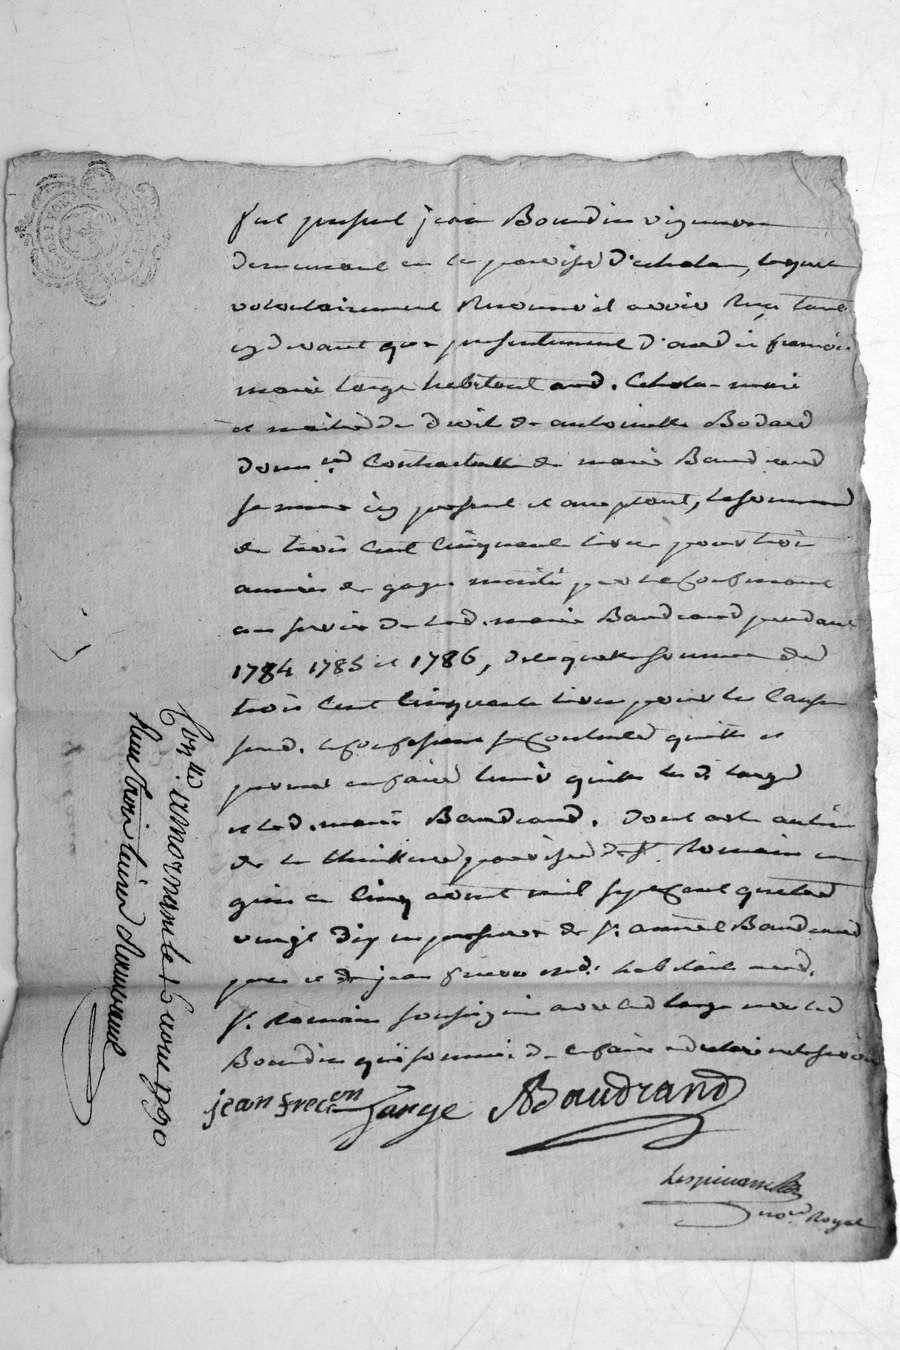 fut present jean Bourdin vigneron
demeurant en la paroisse d'echalas, lequel
volontairement Reconnoit avoir Reçu tant
cy devant que presentement d'andré françois
marie large habitant aud. Echalas mari
et maitre des droits de antoinette Bodard
donn.re Contractuelle de marie Baudrand
sa mere icy present et acceptant, la somme
de trois cent cinquante livres pour trois
années de gages merités par le Confessant
au service de lad. marie Baudrand pendant
1784 1785 et 1786, de laquelle somme de
trois cent cinquante livres pour les causes
susd. le confessant se contente quitte et
promet en faire tenir quitte led. S. large
et lad. marie Baudrand. dont acte
de la paroisse de St. Romain en
gier ce cinq aout mil sept cent quatre
vingt dix en presence de Sr. Baudrand
et de jean frecon habitant aud.
St. Romain soussignés avec led large non led
Bourdin qui sommé de le faire a declaré ne le savoir
jean frecon large ABaudrand
Lespinasse
no.re Royal
Con.lé a Mornant le 15 aout 1790
Reçu trois livres